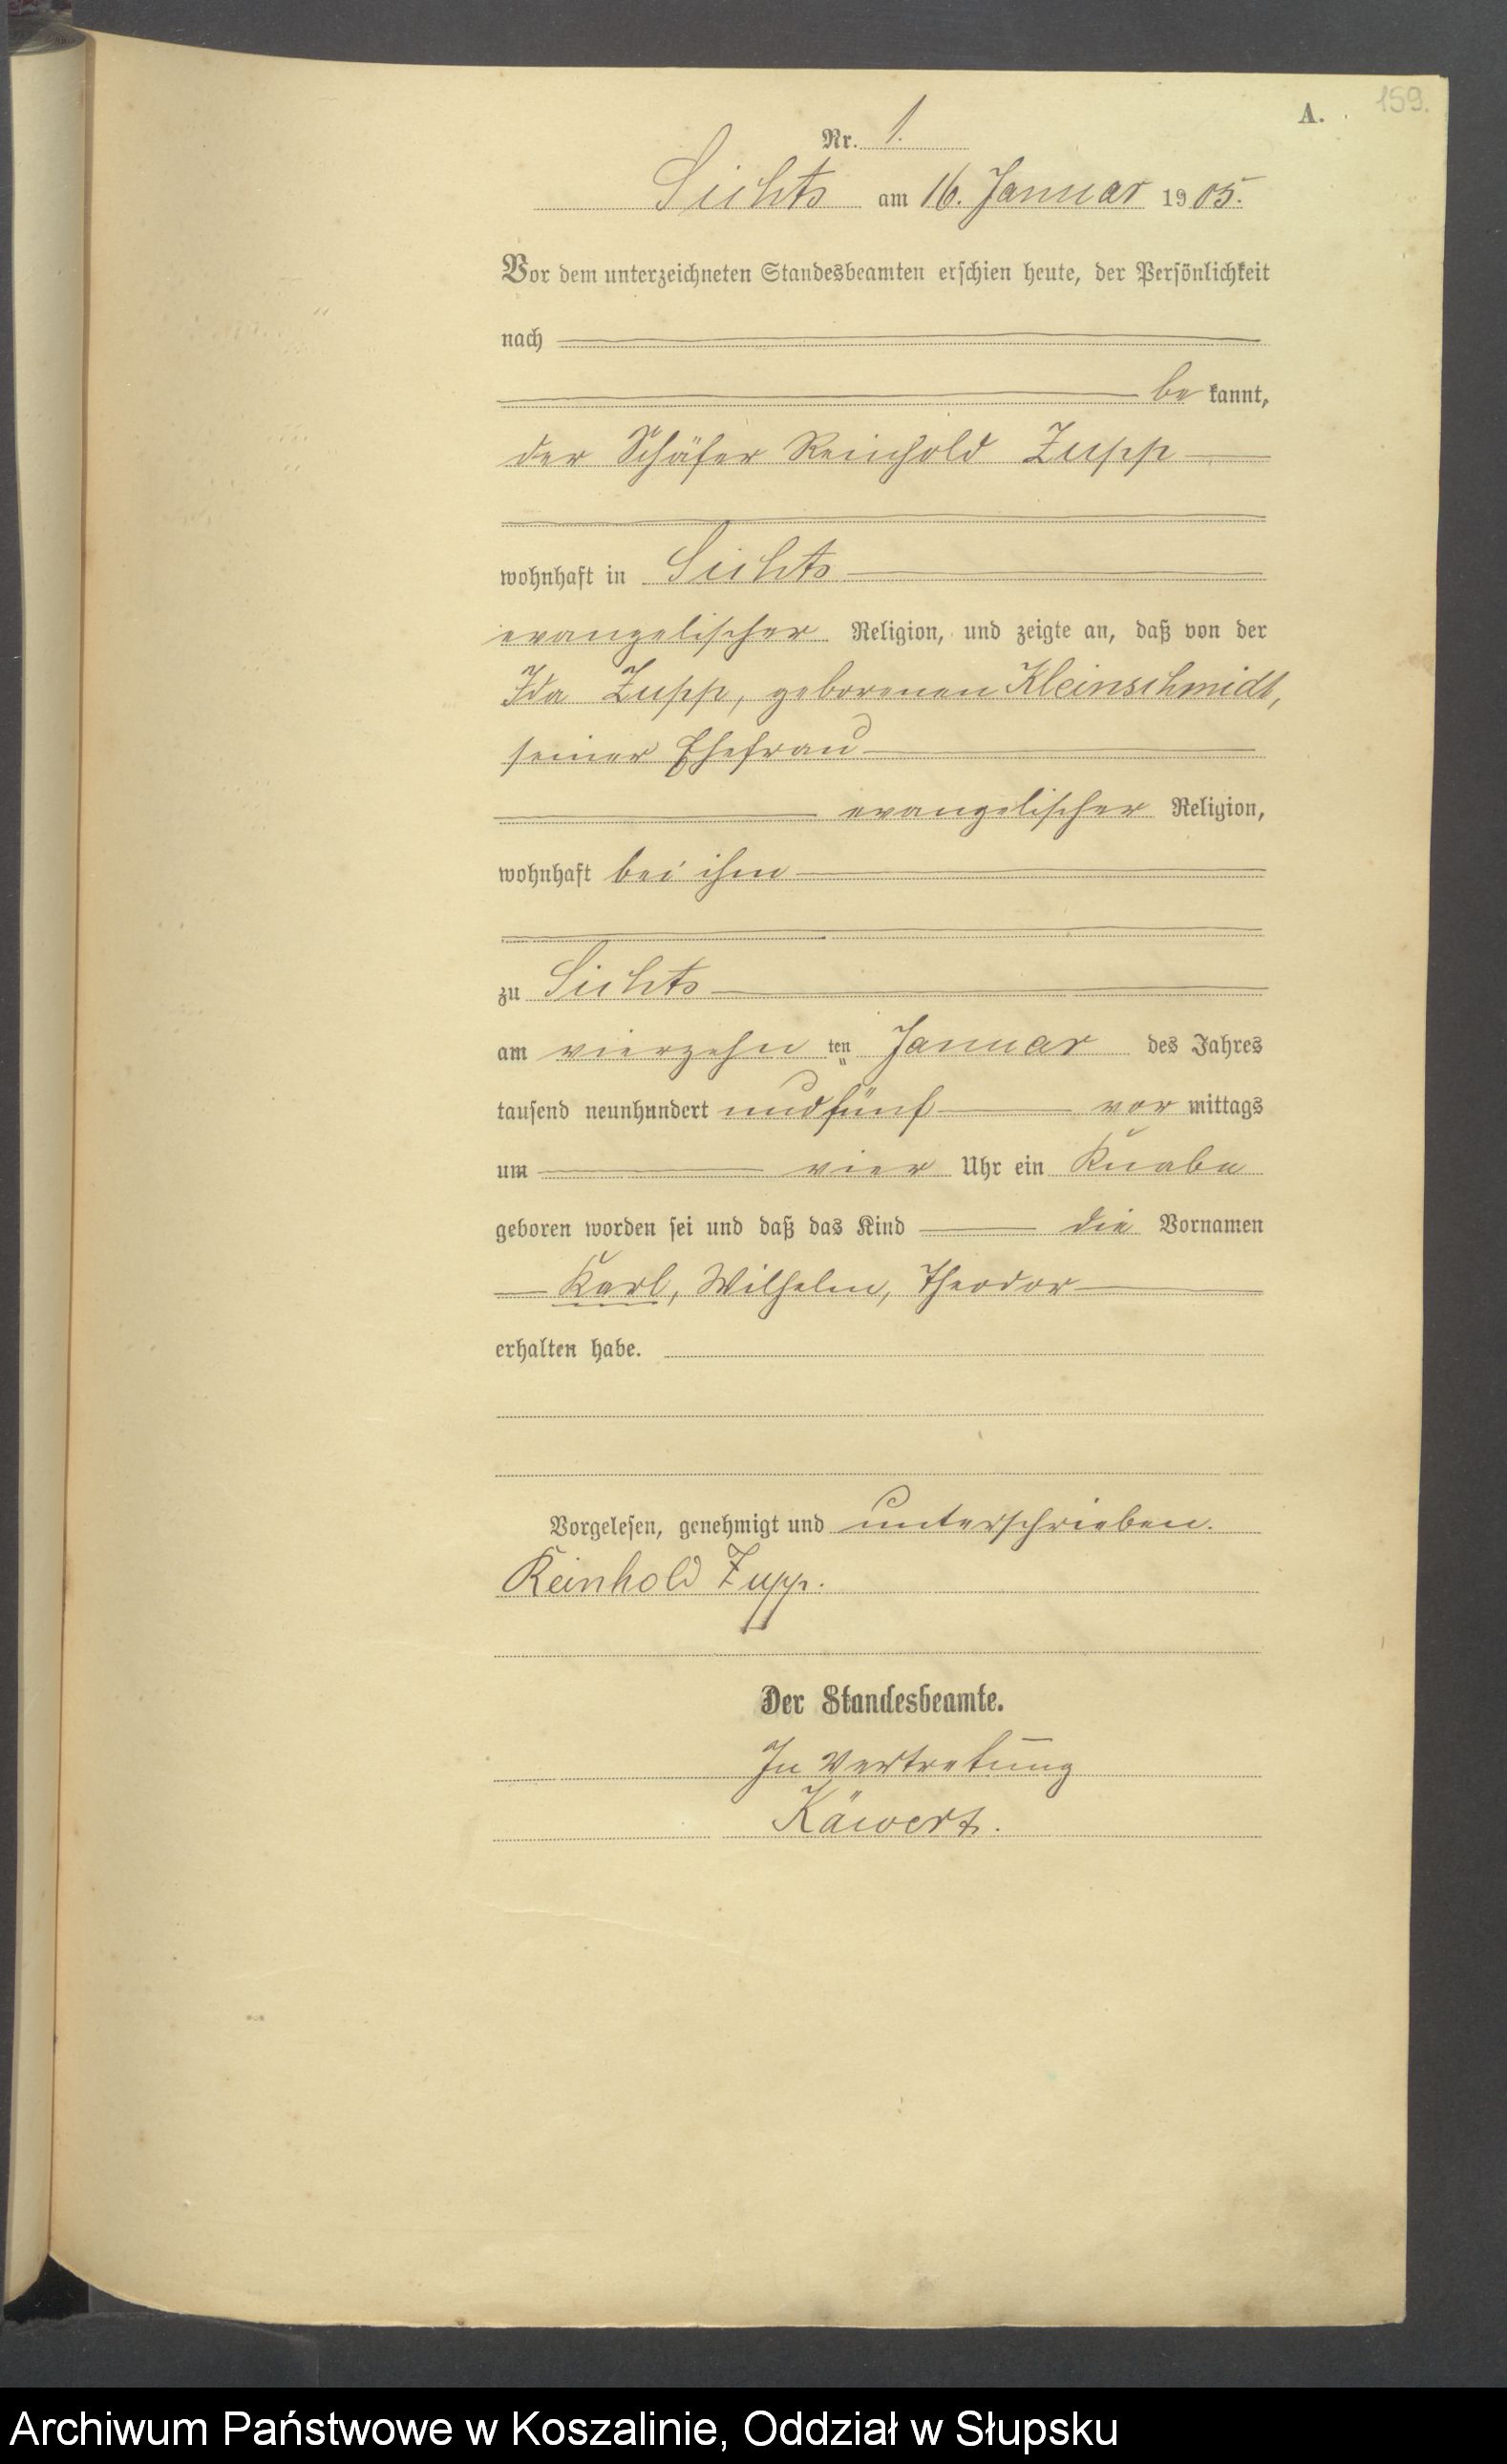 A.
159.
Nr. 1.
Sichts am 16. Januar 1905.
Vor dem unterzeichneten Standesbeamten erschien heute, der Persönlichkeit
nach
bekannt,
der Schäfer Reinhold Zupp
wohnhaft in Sichts
evangelischer Religion, und zeigte an, daß von der
Ida Zupp, geborenen Kleinschmidt,
seiner Ehefrau
evangelischer Religion,
wohnhaft bei ihm
zu Sichts
am vierzehn ten Januar des Jahres
tausend neunhundert und fünf vor mittags
um vier Uhr ein Knabe
geboren worden sei und daß das Kind die Vornamen
Karl, Wilhelm, Theodor
erhalten habe.
Vorgelesen, genehmigt und unterschrieben.
Reinhold Zupp.
Der Standesbeamte.
In Vertretung
Käwert.
Archiwum Państwowe w Koszalinie, Oddział w Słupsku